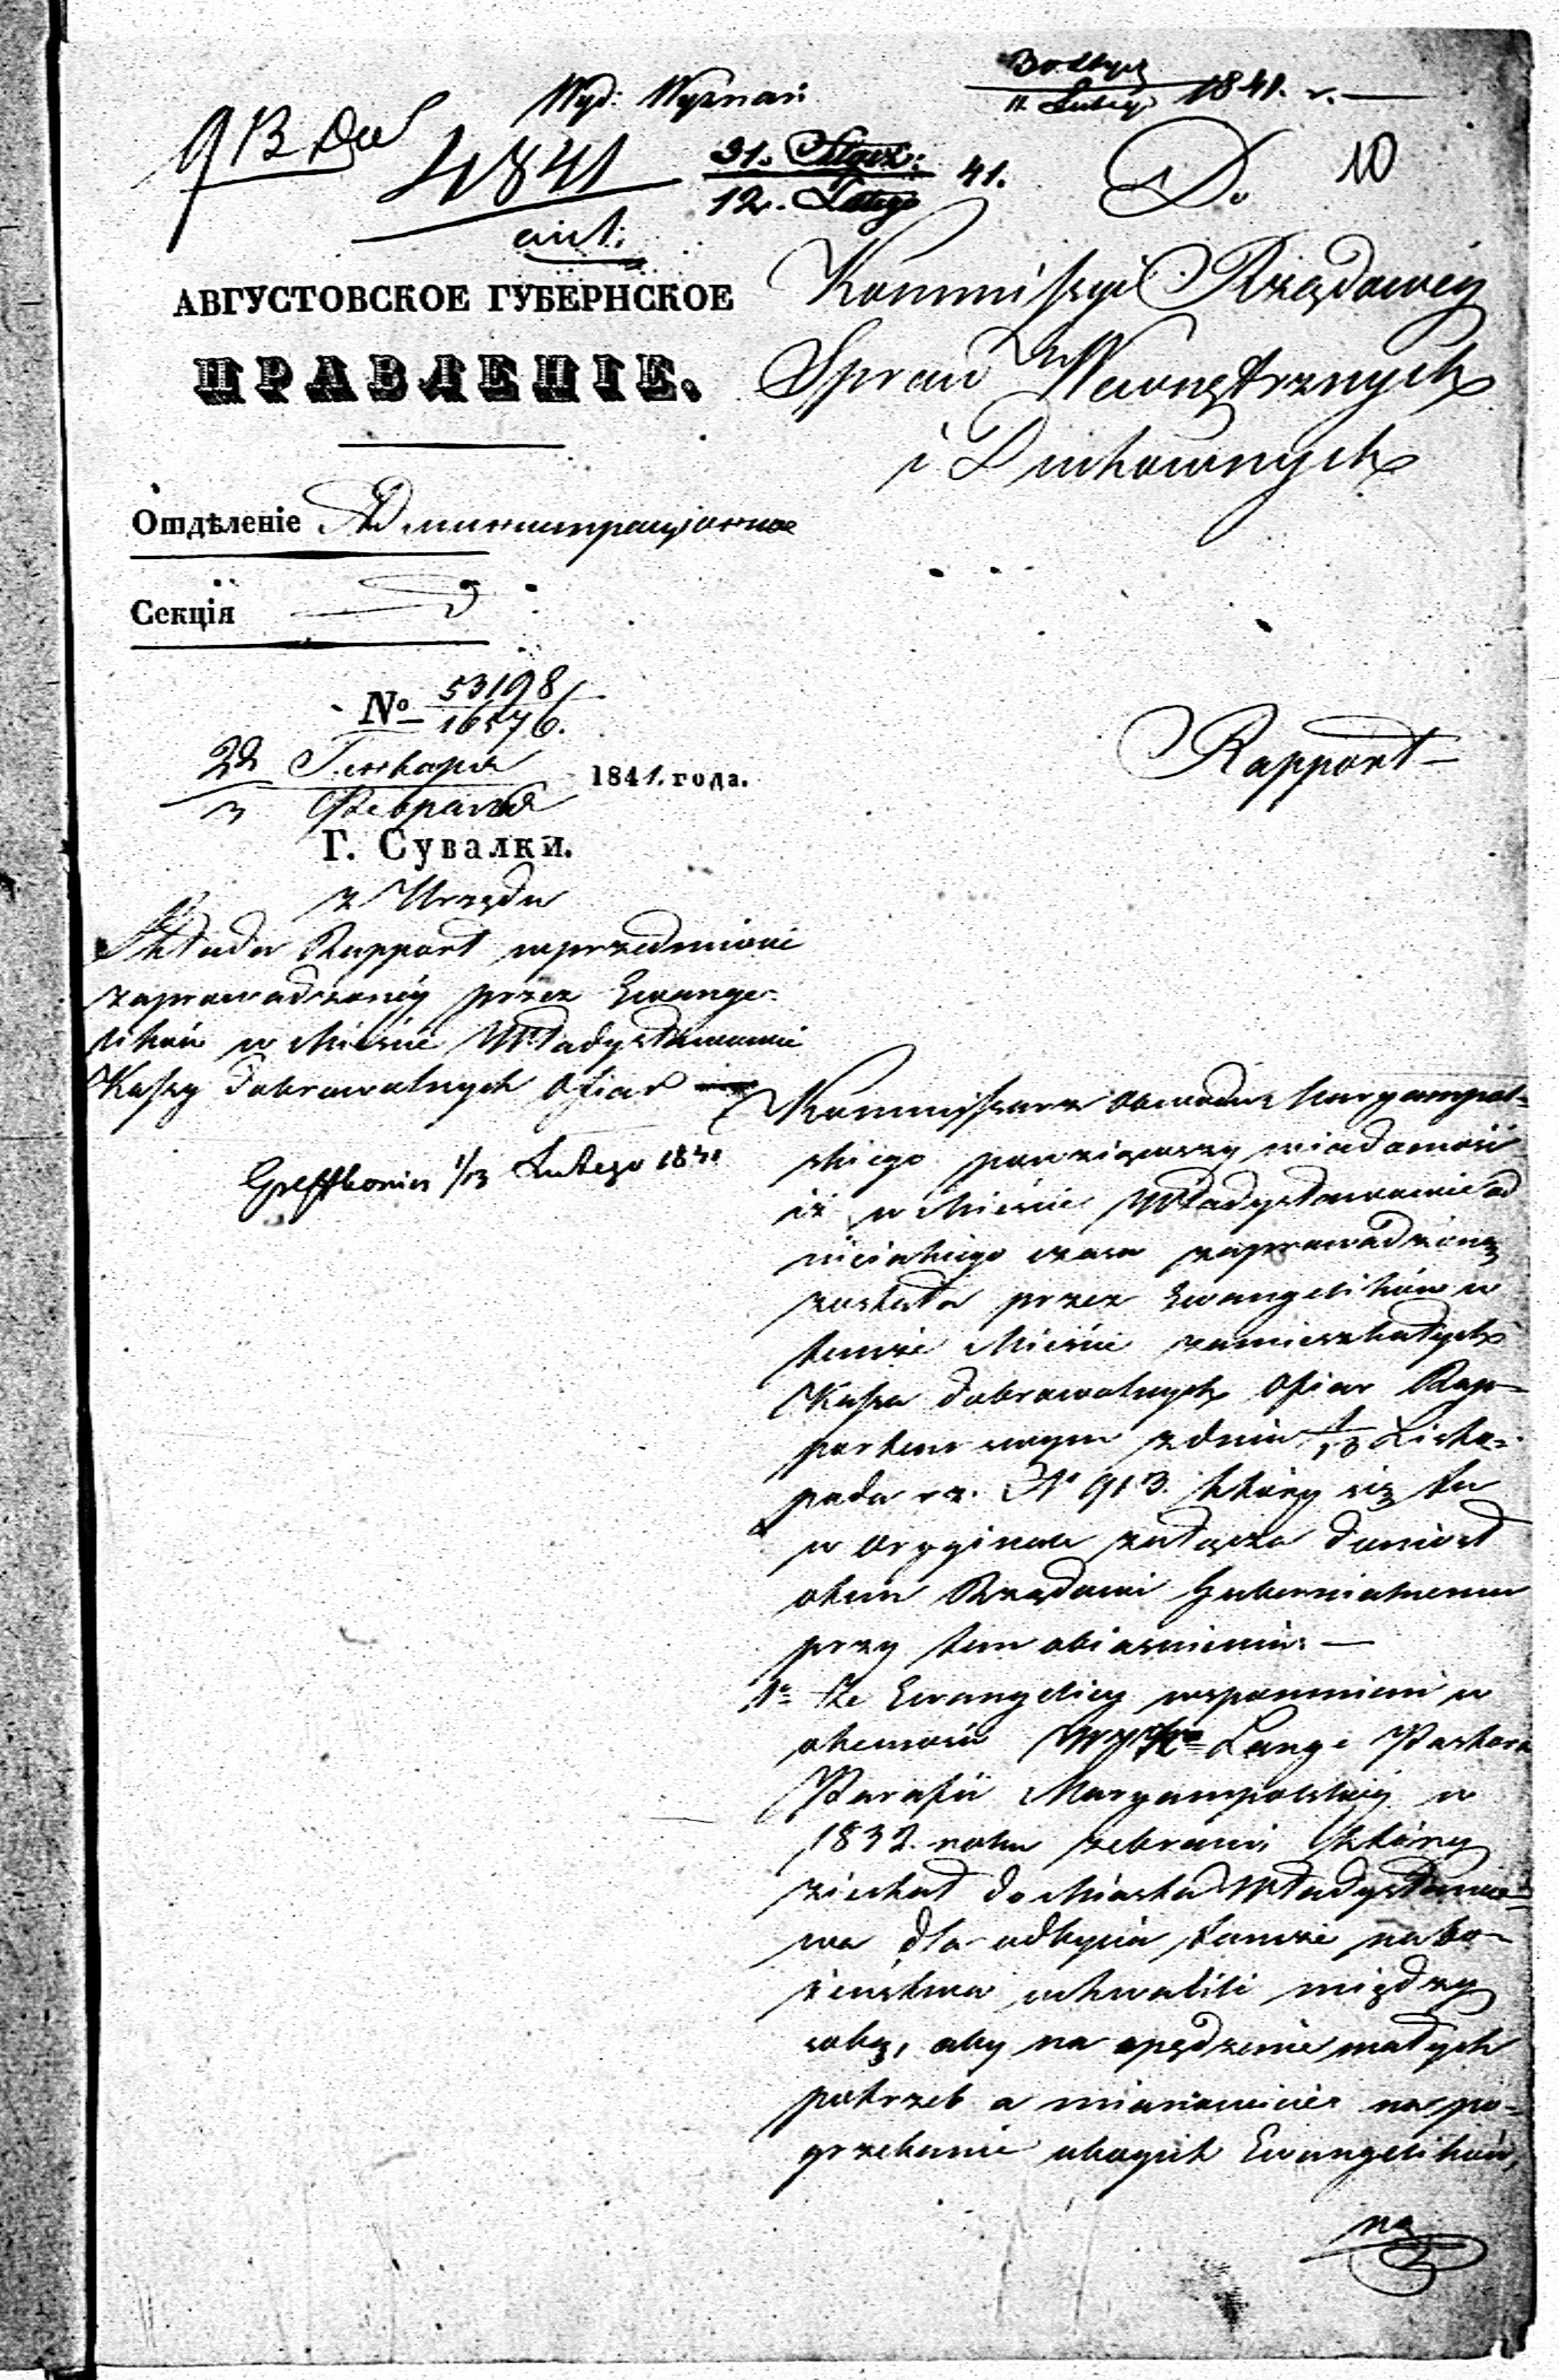 Wyd: Wyznań
1841. r.
11 Lutego
4841
31. Stycz: 41.
12. Lutego
Do
10
АВГУСТОВСКОЕ ГУБЕРНСКОЕ
ПРАВЛЕНІЕ.
Kommissyi Rządowéy
Spraw Wewnętrznych
i Duchownych
Отдѣленіе Администраціонное
Секція
№ 53198/16576.
22 Генваря
3 Февраля
1841. года.
Г. Сувалки.
Rapport
z Urzędu
Składa Rapport w przedmiocie
zaprowadzonéy przez Ewange-
likow w Mieście Władysławowie
Kassy dobrowolnych Ofiar
1/13 Lutego 1841
Kommissarz Obwodu Maryampol-
skiego powziąwszy wiadomość
iż w Mieście Władysławowie od
nieiakiego czasu zaprowadzoną
została przez Ewangelików w
temże Mieście zamieszkałych
Kassa dobrowolnych Ofiar Rap-
portem swym z dnia 1/13 Listo-
pada rz. N° 913. który się tu
w oryginale załącza doniosł
otem Rządowi Gubernialnemu
przy tem obiasnieniu: —
1° że Ewangelicy wspomnieni w
obecności Lange Pastora
Parafii Maryampolskiéy w
1832. roku zebrani, który
ziechał do Miasta Władysławo-
wa dla odbycia tamże nabo-
żeństwa uchwalili między
sobą, aby na opędzenie małych
potrzeb a mianowicie na po-
grzebanie ubogich Ewangelików,
na